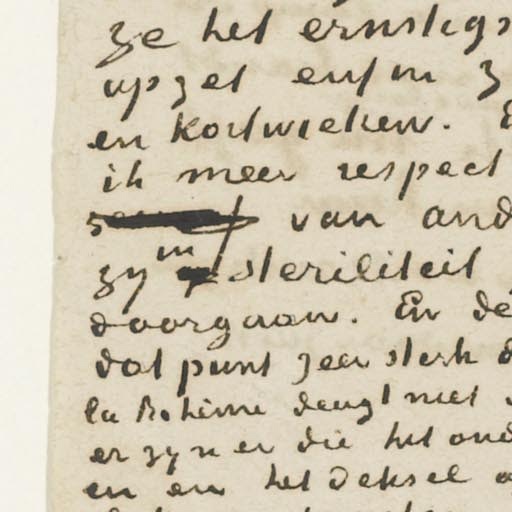 ze het ernstigs
opzet enfin z
en kortwieken. E
ik meer respect
van and
zyn in steriliteit
doorgaan. En de
dat punt zeer sterk d
la Bohème deugt niet
er zyn er die het ond
en en het deksel o